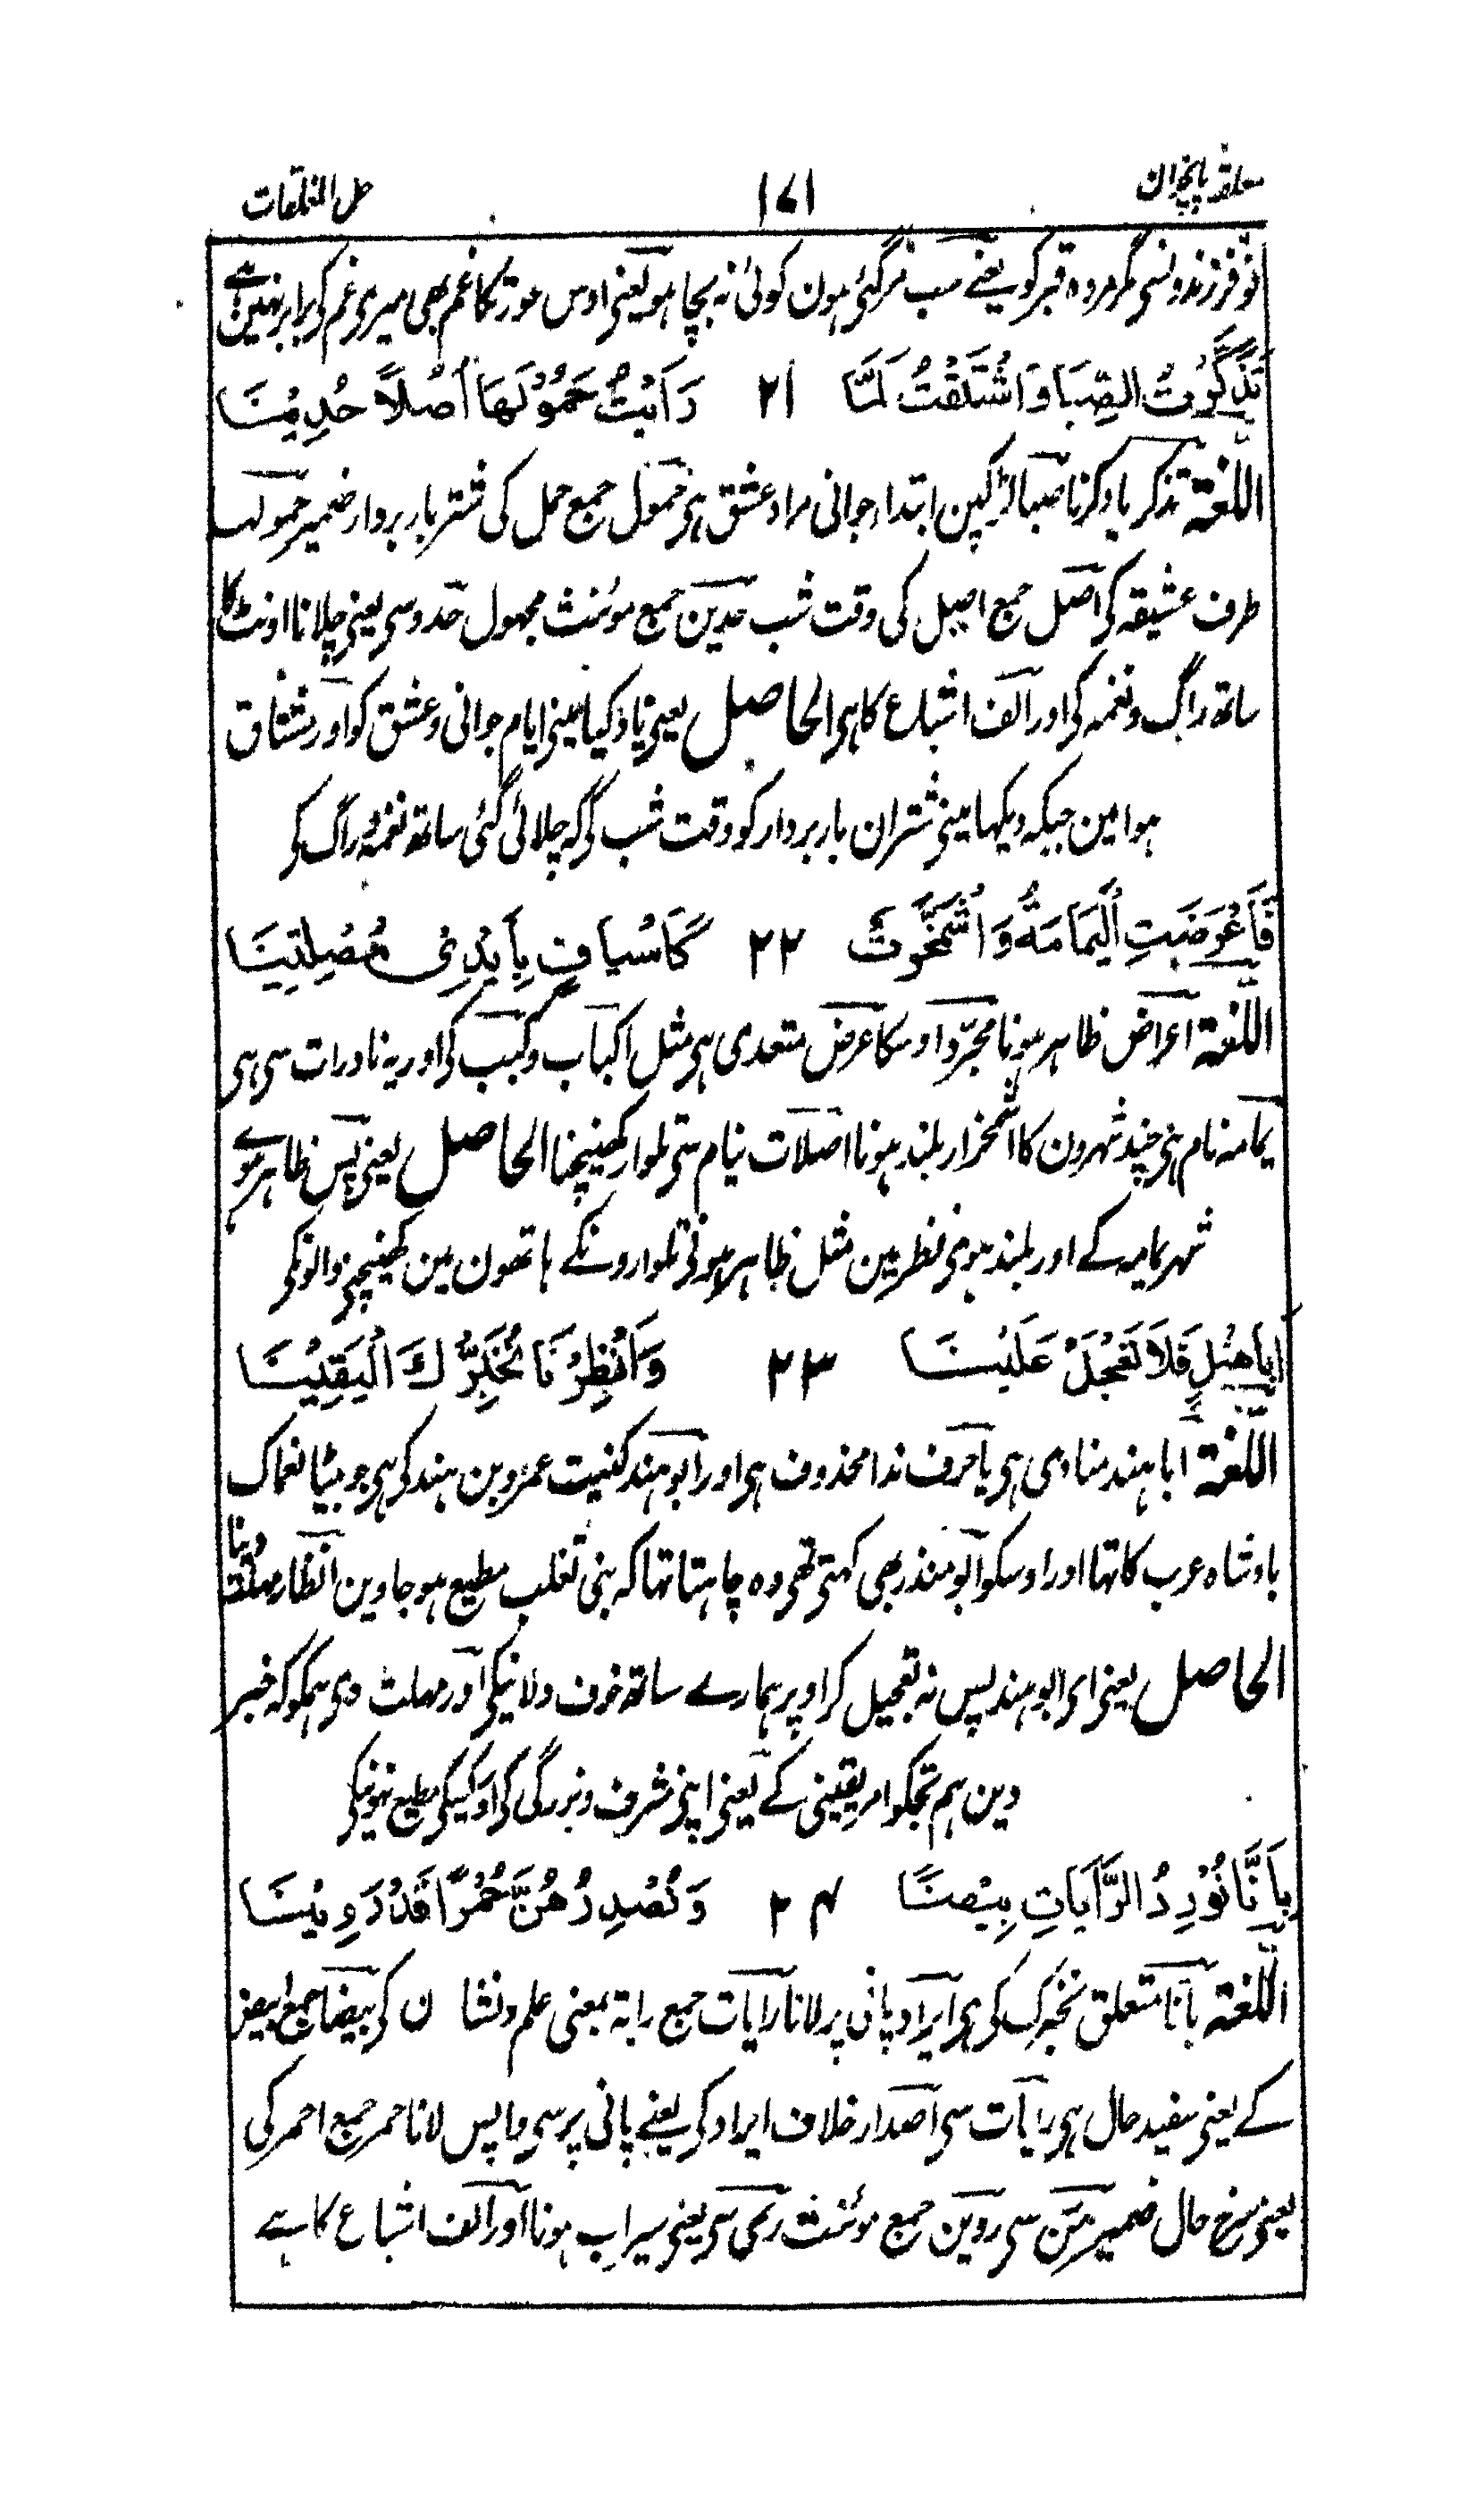 معلقہ پانچوان ۱۷۱ حل المعلقات
نو فرزندونسی مگر مردہ قبر کو یعنے سب مرگئی ہون کوئی نہ بچا ہو یعنی اوس عورتکا غم بھی میری غم کی برابر نہین ہے
تَذَكَّرْتُ الصِّبَا وَاشْتَقْتُ لَمَّا ۲۱ رَاَيْتُ حَمُوْلَهَا اُصُلًا حُدِيْنَا
اللغۃ تذکر یاد کرنا صبا لڑکپن ابتداء جوانی مراد عشق ہی حمول جمع حمل کی شتر باربردار ضمیر حمولہا
طرف عشیقہ کی اصل جمع اصیل کی وقت شب حدین جمع موئنث مجہول حدو سی یعنی چلانا اونٹ کا
ساتھ راگ و نغمہ کی اور الف اشباع کا ہی الحاصل یعنی یاد کیا مینی ایام جوانی و عشق کو اور مشتاق
ہوا مین جبکہ دیکہا مینی شتران باربردار کو وقت شب کی کہ چلائی گئی ساتھ نغمہ و راگ کی
فَاَعْرَضَتِ الْيَمَامَةُ وَاشْمَخَرَّتْ ۲۲ كَاَسْيَافٍ بِاَيْدِىْ مُصْلِتِيْنَا
اللغۃ اعراض ظاہر ہونا مجرد اوسکا عرض متعدی ہی مثل اکباب و کبب کی اور یہ نادرات سی ہی
یمامہ نام ہی چند شہرون کا اشمخرار بلند ہونا اصلات نیام سی تلوار کھینچنا الحاصل یعنی پس ظاہر ہوے
شہر یمامہ کے اور بلند ہوی نظر مین مثل ظاہر ہونی تلوارونکے ہاتھون مین کھینچنی والونکی
اَبَا هِنْدٍ فَلَا تَعْجَلْ عَلَيْنَا ۲۳ وَاَنْظِرْنَا نُخَبِّرْكَ الْيَقِيْنَا
اللغۃ ابا ہند منادی ہی یا حرف ندا محذوف ہی اور ابو ہند کنیت عمرو بن ہند کی ہی جو بیٹا نعمان
بادشاہ عرب کا تھا اور اوسکو ابو منذر بھی کہتی تھی وہ چاہتا تھا کہ بنی تغلب مطیع ہو جاوین انظار مہلت دینا
الحاصل یعنی ای ابو ہند پس نہ تعجیل کر اوپر ہمارے ساتھ خوف دلانیکی اور مہلت دی ہمکو کہ خبر
دین ہم تجکو امر یقینی کے یعنی اپنی شرف و بزرگی کی اور کسیکی مطیع نہونیکی
بِاَنَّا نُوْرِدُ الرَّايَاتِ بِيْضًا ۲۴ وَنُصْدِرُهُنَّ حُمْرًا قَدْ رَوِيْنَا
اللغۃ بانا متعلق نخبرک کی ہی ایراد پانی پر لانا رایات جمع رایۃ بمعنی علم و نشان کی بیضا جمع ابیض
کے یعنی سفید حال ہی رایات سی اصدار خلاف ایراد کی یعنے پانی پر سی واپس لانا حمر جمع احمر کی
یعنی سرخ حال ضمیر ہن سی روین جمع موئنث ری سی یعنی سیراب ہونا اور الف اشباع کا ہے